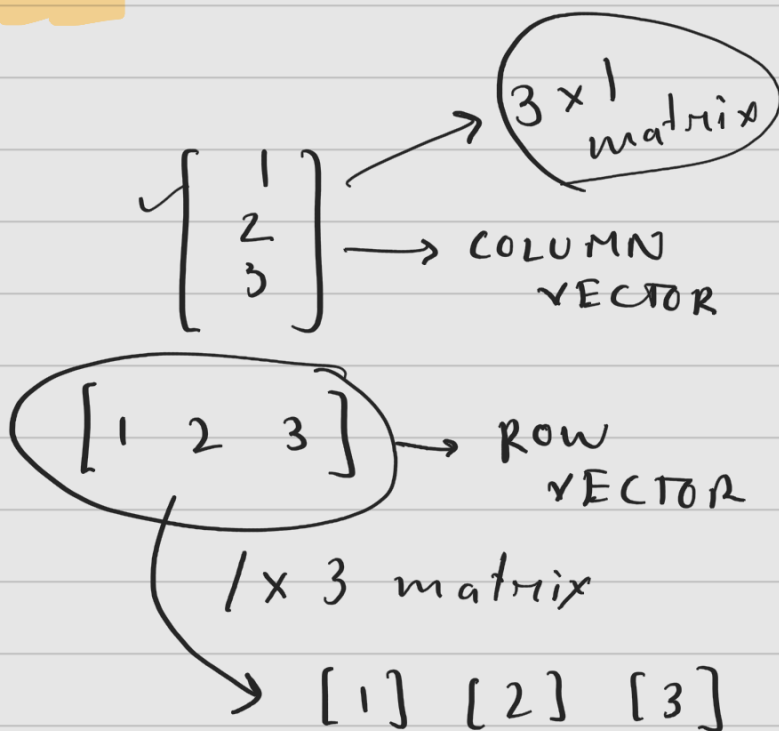 3 x 1
matrix
[ 1
2
3 ]
COLUMN
VECTOR
[ 1 2 3 ]
ROW
VECTOR
1 x 3 matrix
[1] [2] [3]